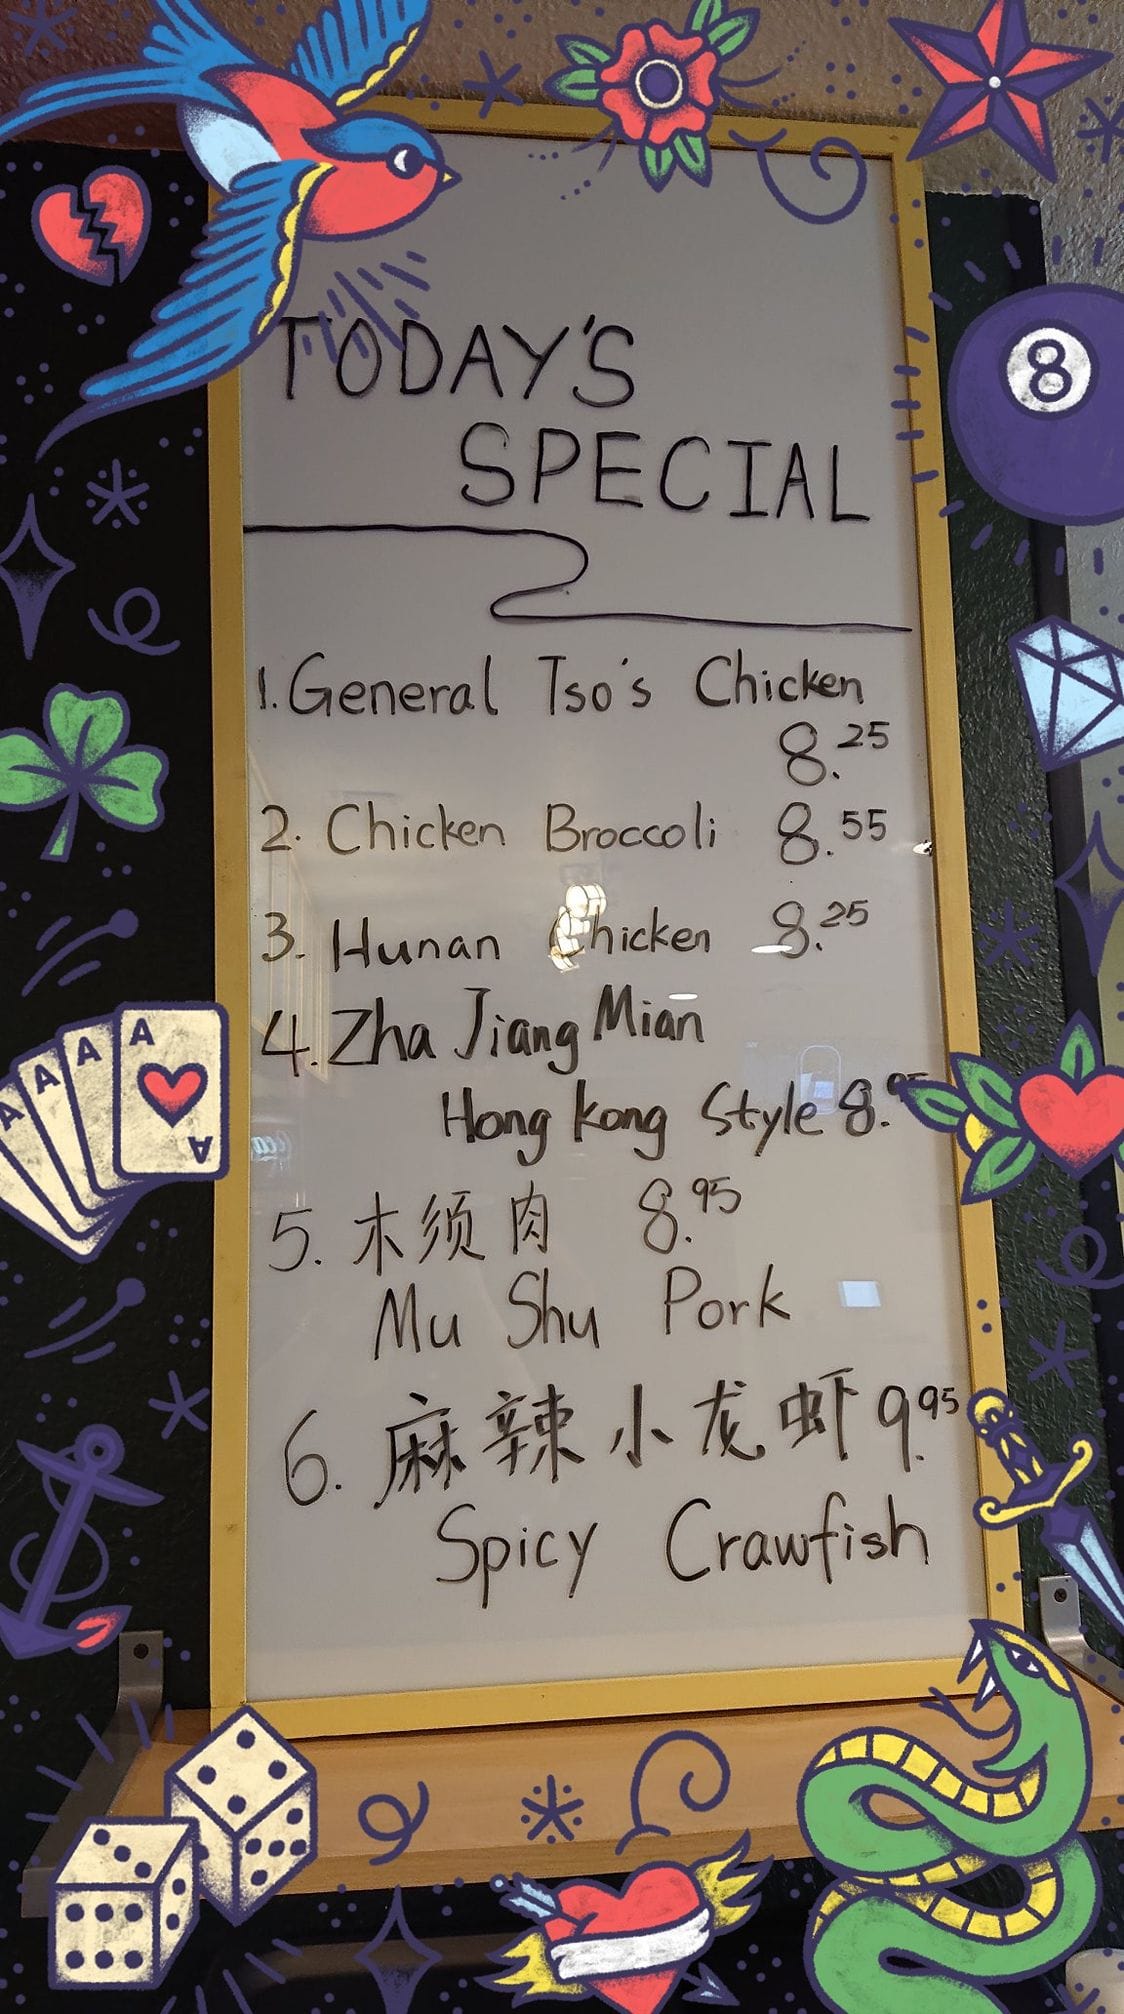 TODAY'S
SPECIAL
1. General Tso's Chicken
8.25
2. Chicken Broccoli 8.55
3. Hunan Chicken 8.25
4. Zha Jiang Mian
Hong Kong Style 8.95
5. 木须肉 8.95
Mu Shu Pork
6. 麻辣小龙虾 9.95
Spicy Crawfish
8
A
A
A
A
A